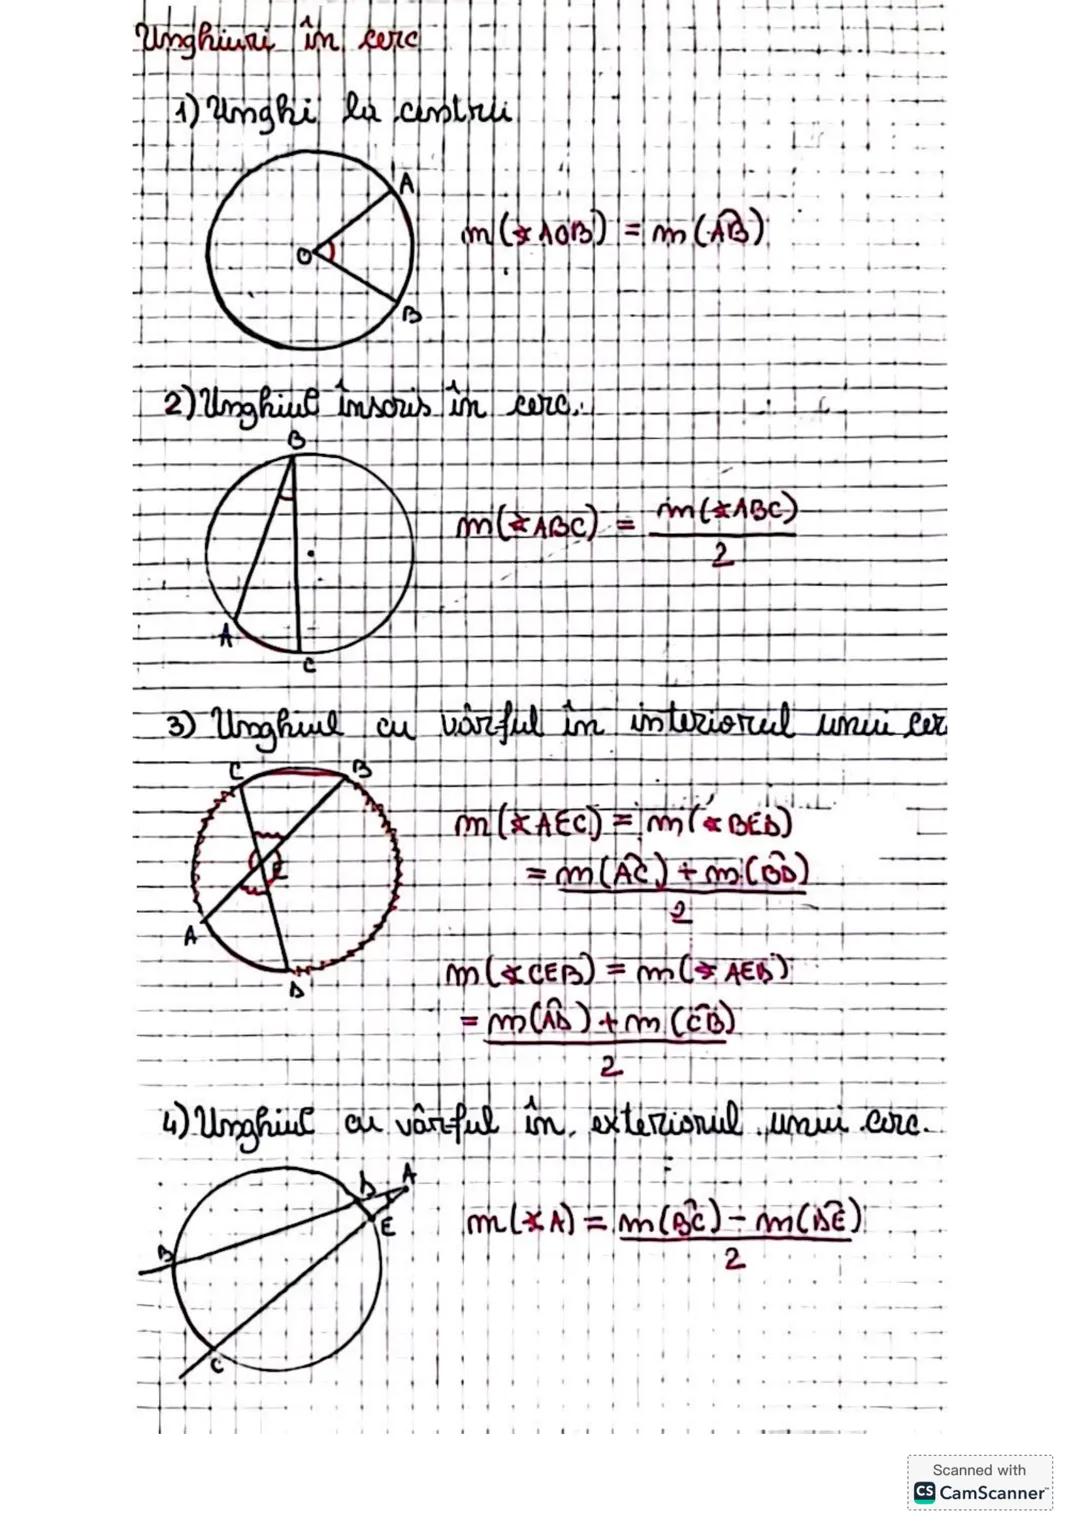 Unghiuri în cerc
1) Unghi la centru
A
O
B
m(∢AOB) = m(A͡B)
2) Unghiul înscris în cerc.
B
A
C
m(∢ABC) = m(∢ABC)
2
3) Unghiul cu vârful în interiorul unui cer
C
B
E
A
D
m(∢AEC) = m(∢BED)
= m(A͡C) + m(B͡D)
2
m(∢CEB) = m(∢AED)
= m(A͡D) + m(C͡B)
2
4) Unghiul cu vârful în exteriorul unui cerc.
D
A
E
B
C
m(∢A) = m(B͡C) - m(D͡E)
2
Scanned with
CS CamScanner